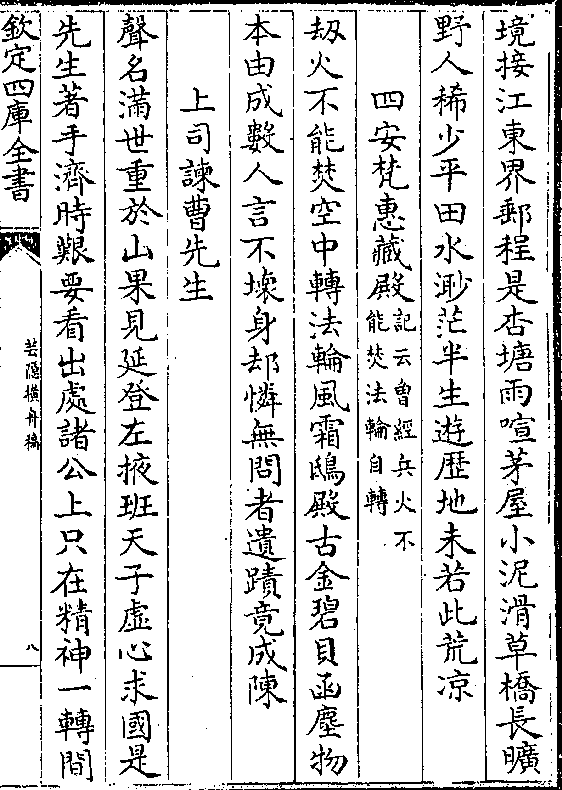 境接江東界郵程是杏塘雨喧茅屋小泥滑草橋長曠
野人稀少平田水渺茫半生遊歴地未若此荒凉
四安梵惠藏殿記云曾經兵火不能焚法輪自轉
刼火不能焚空中轉法輪風霜鴟殿古金碧貝函塵物
本由成數人言不壊身却憐無問者遺蹟竟成陳
上司諫曹先生
聲名滿世重於山果見延登左掖班天子虛心求國是
先生著手濟時艱要看出處諸公上只在精神一轉間
欽定四庫全書
芸隱橫舟稿
八